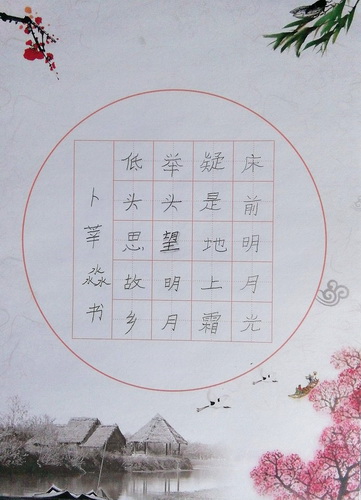 床前明月光
疑是地上霜
举头望明月
低头思故乡
卜莘淼书